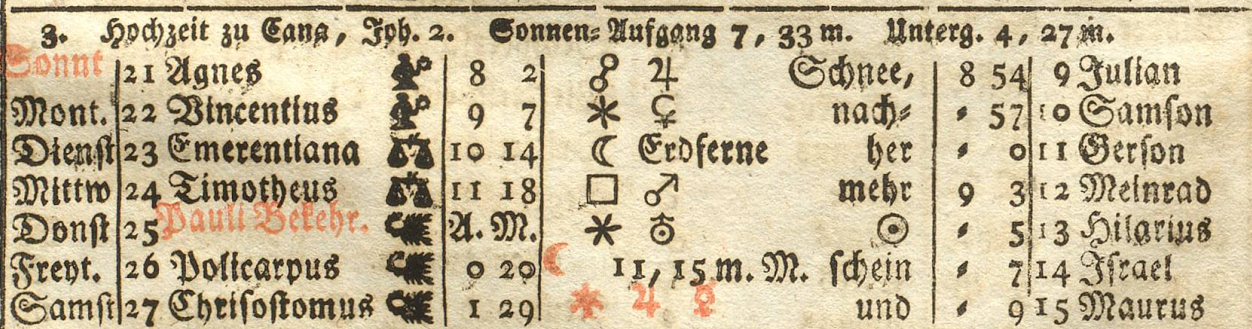 3. Hochzeit zu Cana, Joh. 2. Sonnen-Aufgang 7, 33 m. Unterg. 4, 27 m.
Sonnt 21 Agnes 8 2 ☍ ♃ Schnee, 8 54 9 Julian
Mont. 22 Vincentius 9 7 ⚹ ♀ nach- - 57 10 Samson
Dienst 23 Emerentiana ♎ 10 14 ☾ Erdferne her - 0 11 Gerson
Mittw 24 Timotheus ♎ 11 18 □ ♂ mehr 9 3 12 Meinrad
Donst 25 Pauli Bekehr. A. M. ⚹ ⛢ ☉ - 5 13 Hilarius
Freyt. 26 Policarpus 0 20 ☾ 11, 15 m. M. schein - 7 14 Israel
Samst 27 Chrisostomus 1 29 ⚹ ♃ ♀ und - 9 15 Maurus